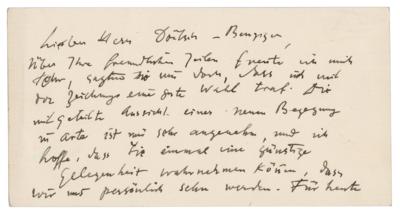 Lieber Herr Doktor – Bengiger,
Über Ihre freundlichen Zeilen freute ich mich
sehr, sagten Sie mir doch, dass ich mit
der Zeichnung eine gute Wahl traf. Die
mitgeteilte Aussicht einer neuen Begegnung
in arte ist mir sehr angenehm, und ich
hoffe, dass Sie einmal eine günstige
Gelegenheit wahrnehmen können, dass
wir uns persönlich sehn werden. Für heute